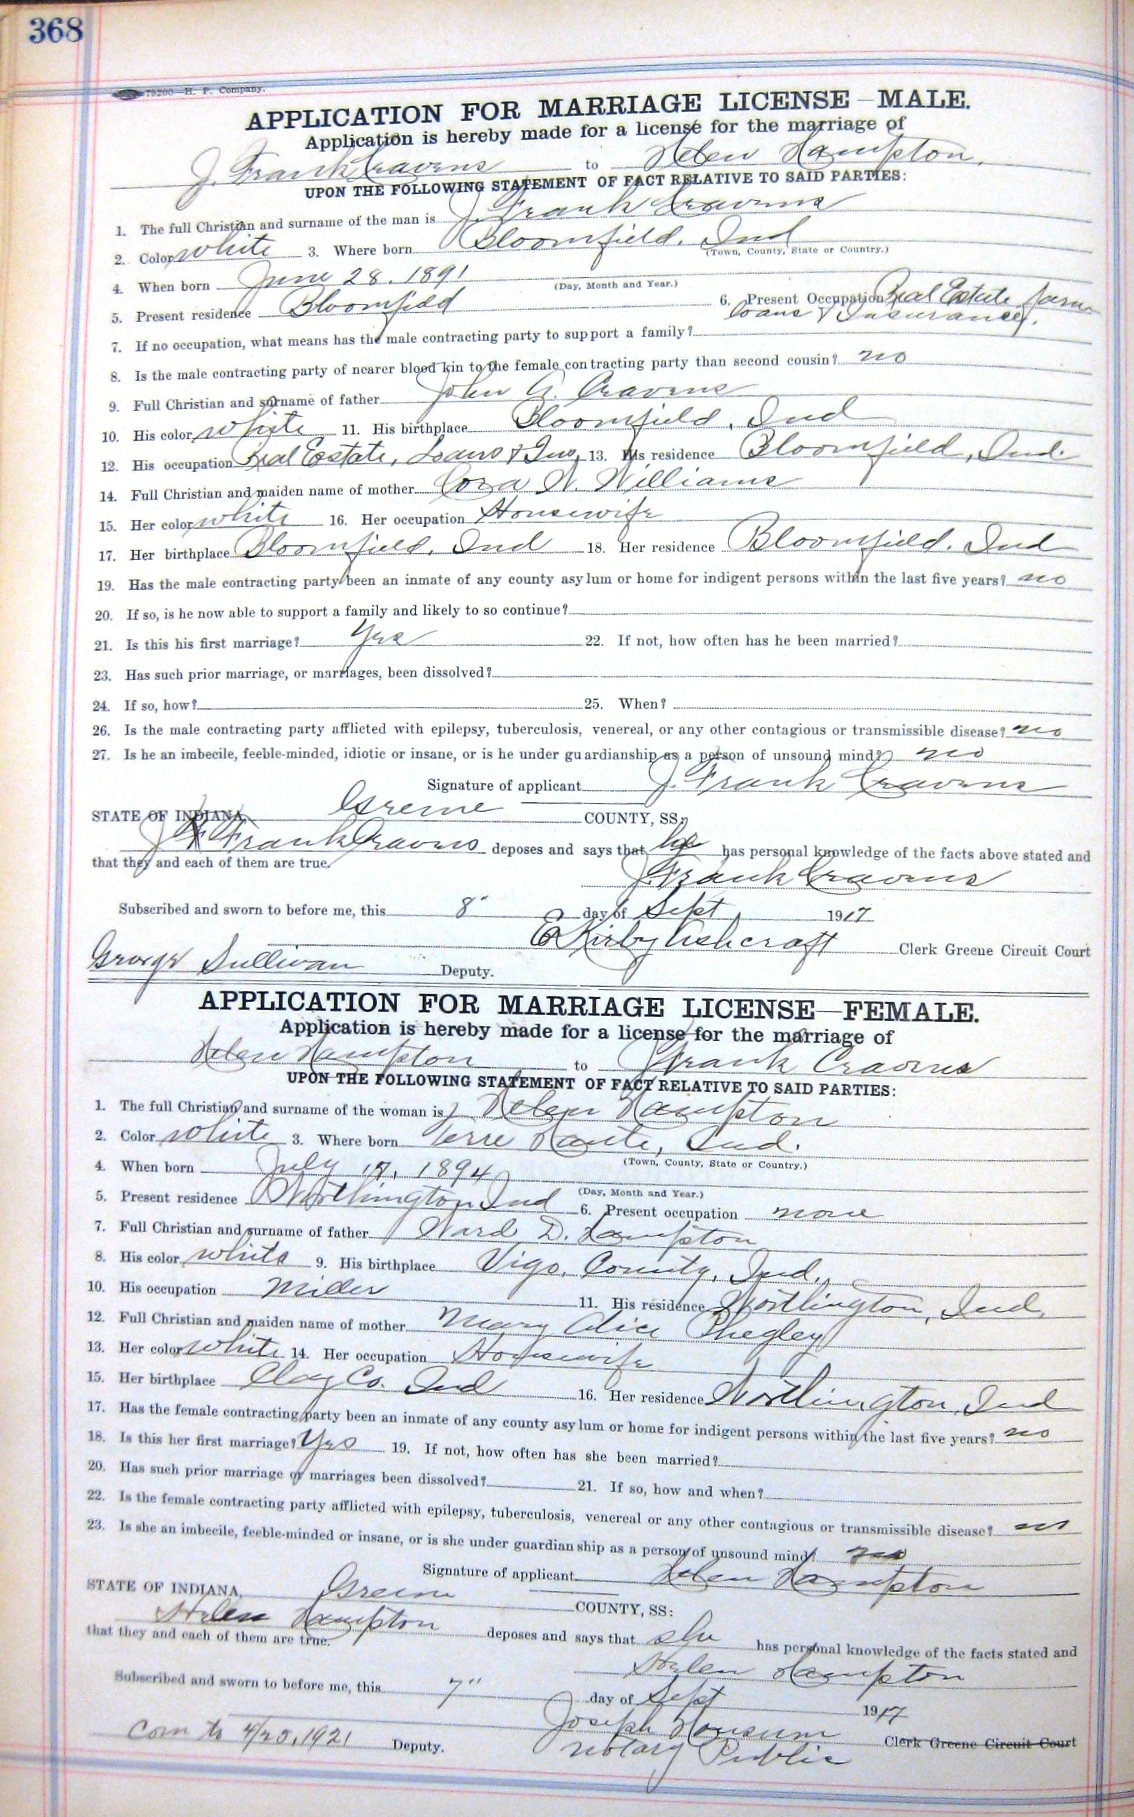 368
79200—H. P. Company.
APPLICATION FOR MARRIAGE LICENSE—MALE.
Application is hereby made for a license for the marriage of
J. Frank Cravens to Helen Hampton.
UPON THE FOLLOWING STATEMENT OF FACT RELATIVE TO SAID PARTIES:
1. The full Christian and surname of the man is J. Frank Cravens
2. Color white 3. Where born Bloomfield, Ind
(Town, County, State or Country.)
4. When born June 28, 1891
(Day, Month and Year.)
5. Present residence Bloomfield 6. Present Occupation Real Estate farm
loans & Insurance.
7. If no occupation, what means has the male contracting party to support a family?
8. Is the male contracting party of nearer blood kin to the female contracting party than second cousin? no
9. Full Christian and surname of father John A. Cravens
10. His color white 11. His birthplace Bloomfield, Ind
12. His occupation Real Estate, Loans & Ins, 13. His residence Bloomfield, Ind.
14. Full Christian and maiden name of mother Cora N. Williams
15. Her color white 16. Her occupation Housewife
17. Her birthplace Bloomfield, Ind 18. Her residence Bloomfield, Ind
19. Has the male contracting party been an inmate of any county asylum or home for indigent persons within the last five years? no
20. If so, is he now able to support a family and likely to so continue?
21. Is this his first marriage? Yes 22. If not, how often has he been married?
23. Has such prior marriage, or marriages, been dissolved?
24. If so, how? 25. When?
26. Is the male contracting party afflicted with epilepsy, tuberculosis, venereal, or any other contagious or transmissible disease? no
27. Is he an imbecile, feeble-minded, idiotic or insane, or is he under guardianship as a person of unsound mind? no
Signature of applicant J. Frank Cravens
STATE OF INDIANA, Greene COUNTY, SS:
J. Frank Cravens deposes and says that he has personal knowledge of the facts above stated and
that they and each of them are true.
J. Frank Cravens
Subscribed and sworn to before me, this 8" day of Sept, 1917
E Kirby Ashcraft Clerk Greene Circuit Court
George Sullivan Deputy.
APPLICATION FOR MARRIAGE LICENSE—FEMALE.
Application is hereby made for a license for the marriage of
Helen Hampton to J Frank Cravens
UPON THE FOLLOWING STATEMENT OF FACT RELATIVE TO SAID PARTIES:
1. The full Christian and surname of the woman is Helen Hampton
2. Color white 3. Where born Terre Haute, Ind.
(Town, County, State or Country.)
4. When born July 17, 1894
(Day, Month and Year.)
5. Present residence Worthington Ind 6. Present occupation none
7. Full Christian and surname of father Ward D. Hampton
8. His color white 9. His birthplace Vigo, County, Ind.,
10. His occupation Miller 11. His residence Worthington, Ind,
12. Full Christian and maiden name of mother Mary Alice Phegley
13. Her color white 14. Her occupation Housewife
15. Her birthplace Clay Co. Ind 16. Her residence Worthington, Ind
17. Has the female contracting party been an inmate of any county asylum or home for indigent persons within the last five years? no
18. Is this her first marriage? Yes 19. If not, how often has she been married?
20. Has such prior marriage or marriages been dissolved? 21. If so, how and when?
22. Is the female contracting party afflicted with epilepsy, tuberculosis, venereal or any other contagious or transmissible disease? no
23. Is she an imbecile, feeble-minded or insane, or is she under guardianship as a person of unsound mind? no
Signature of applicant Helen Hampton
STATE OF INDIANA, Greene COUNTY, SS:
Helen Hampton deposes and says that she has personal knowledge of the facts stated and
that they and each of them are true.
Helen Hampton
Subscribed and sworn to before me, this 7" day of Sept 1917
Joseph
Com to 4/20, 1921 Deputy. Notary Public Clerk Greene Circuit Court